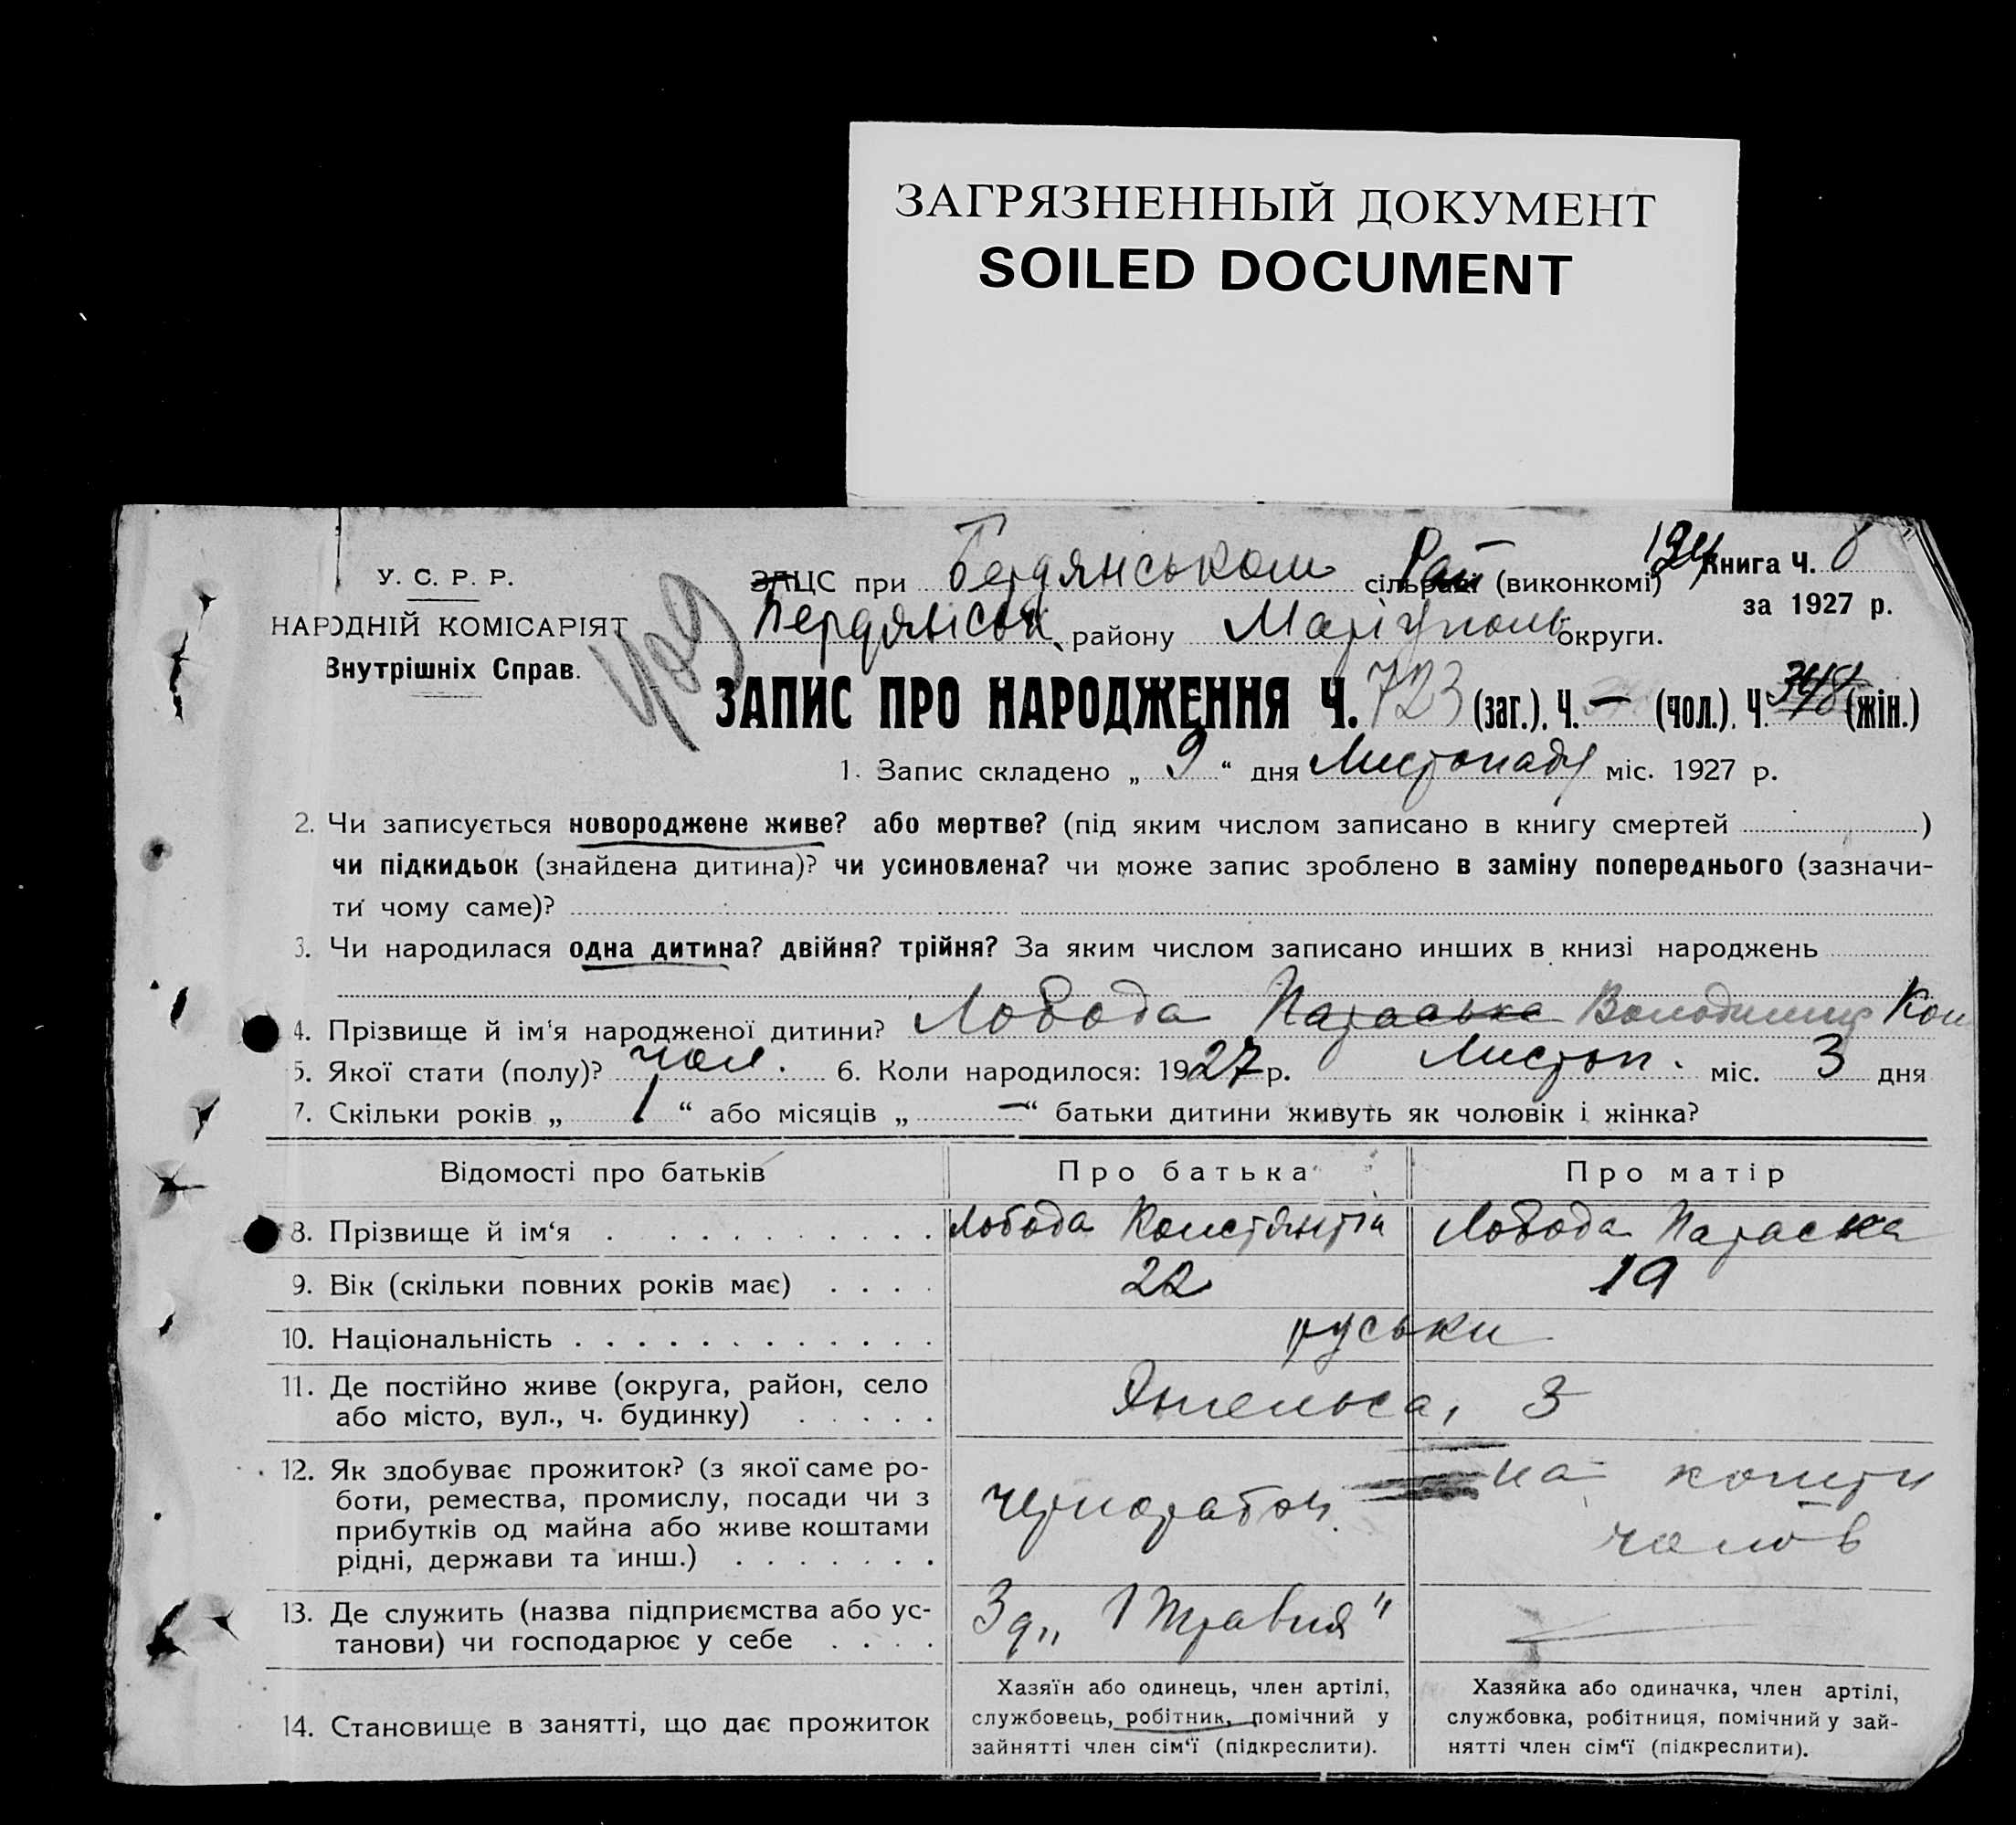 ЗАГРЯЗНЕННЫЙ ДОКУМЕНТ
SOILED DOCUMENT
У. С. Р. Р.
НАРОДНІЙ КОМІСАРІЯТ
Внутрішніх Справ.
409
ЗАЦС при Бердянськом Рай сільраді (виконкомі)
Книга Ч. 8
за 1927 р.
Бердянськ. району Маріуполь округи.
ЗАПИС ПРО НАРОДЖЕННЯ Ч. 723 (заг.), Ч. — (чол.), Ч. 348 (жін.)
1. Запис складено „ 9 “ дня Листопаду міс. 1927 р.
2. Чи записується новороджене живе? або мертве? (під яким числом записано в книгу смертей )
чи підкидьок (знайдена дитина)? чи усиновлена? чи може запис зроблено в заміну попереднього (зазначи-
ти чому саме)?
3. Чи народилася одна дитина? двійня? трійня? За яким числом записано инших в книзі народжень
4. Прізвище й ім'я народженої дитини? Лобода Параська Володимир Кон
5. Якої стати (полу)? чол. 6. Коли народилося: 1927 р. Листоп. міс. 3 дня
7. Скільки років „ 1 “ або місяців „ — “ батьки дитини живуть як чоловік і жінка?
Відомості про батьків Про батька Про матір
8. Прізвище й ім‘я Лобода Констянтін Лобода Параска
9. Вік (скільки повних років має) 22 19
10. Національність руськи
11. Де постійно живе (округа, район, село
або місто, вул., ч. будинку) Янгельса, 3
12. Як здобуває прожиток? (з якої саме ро-
боти, ремества, промислу, посади чи з
прибутків од майна або живе коштами
рідні, держави та инш.)
чернорабоч. на кошти
чолов
13. Де служить (назва підприємства або ус-
танови) чи господарює у себе
Зд „ 1 Травня "
14. Становище в занятті, що дає прожиток
Хазяїн або одинець, член артілі,
службовець, робітник, помічний у
зайнятті член сім‘ї (підкреслити).
Хазяйка або одиначка, член артілі,
службовка, робітниця, помічний у зай-
нятті член сім‘ї (підкреслити).